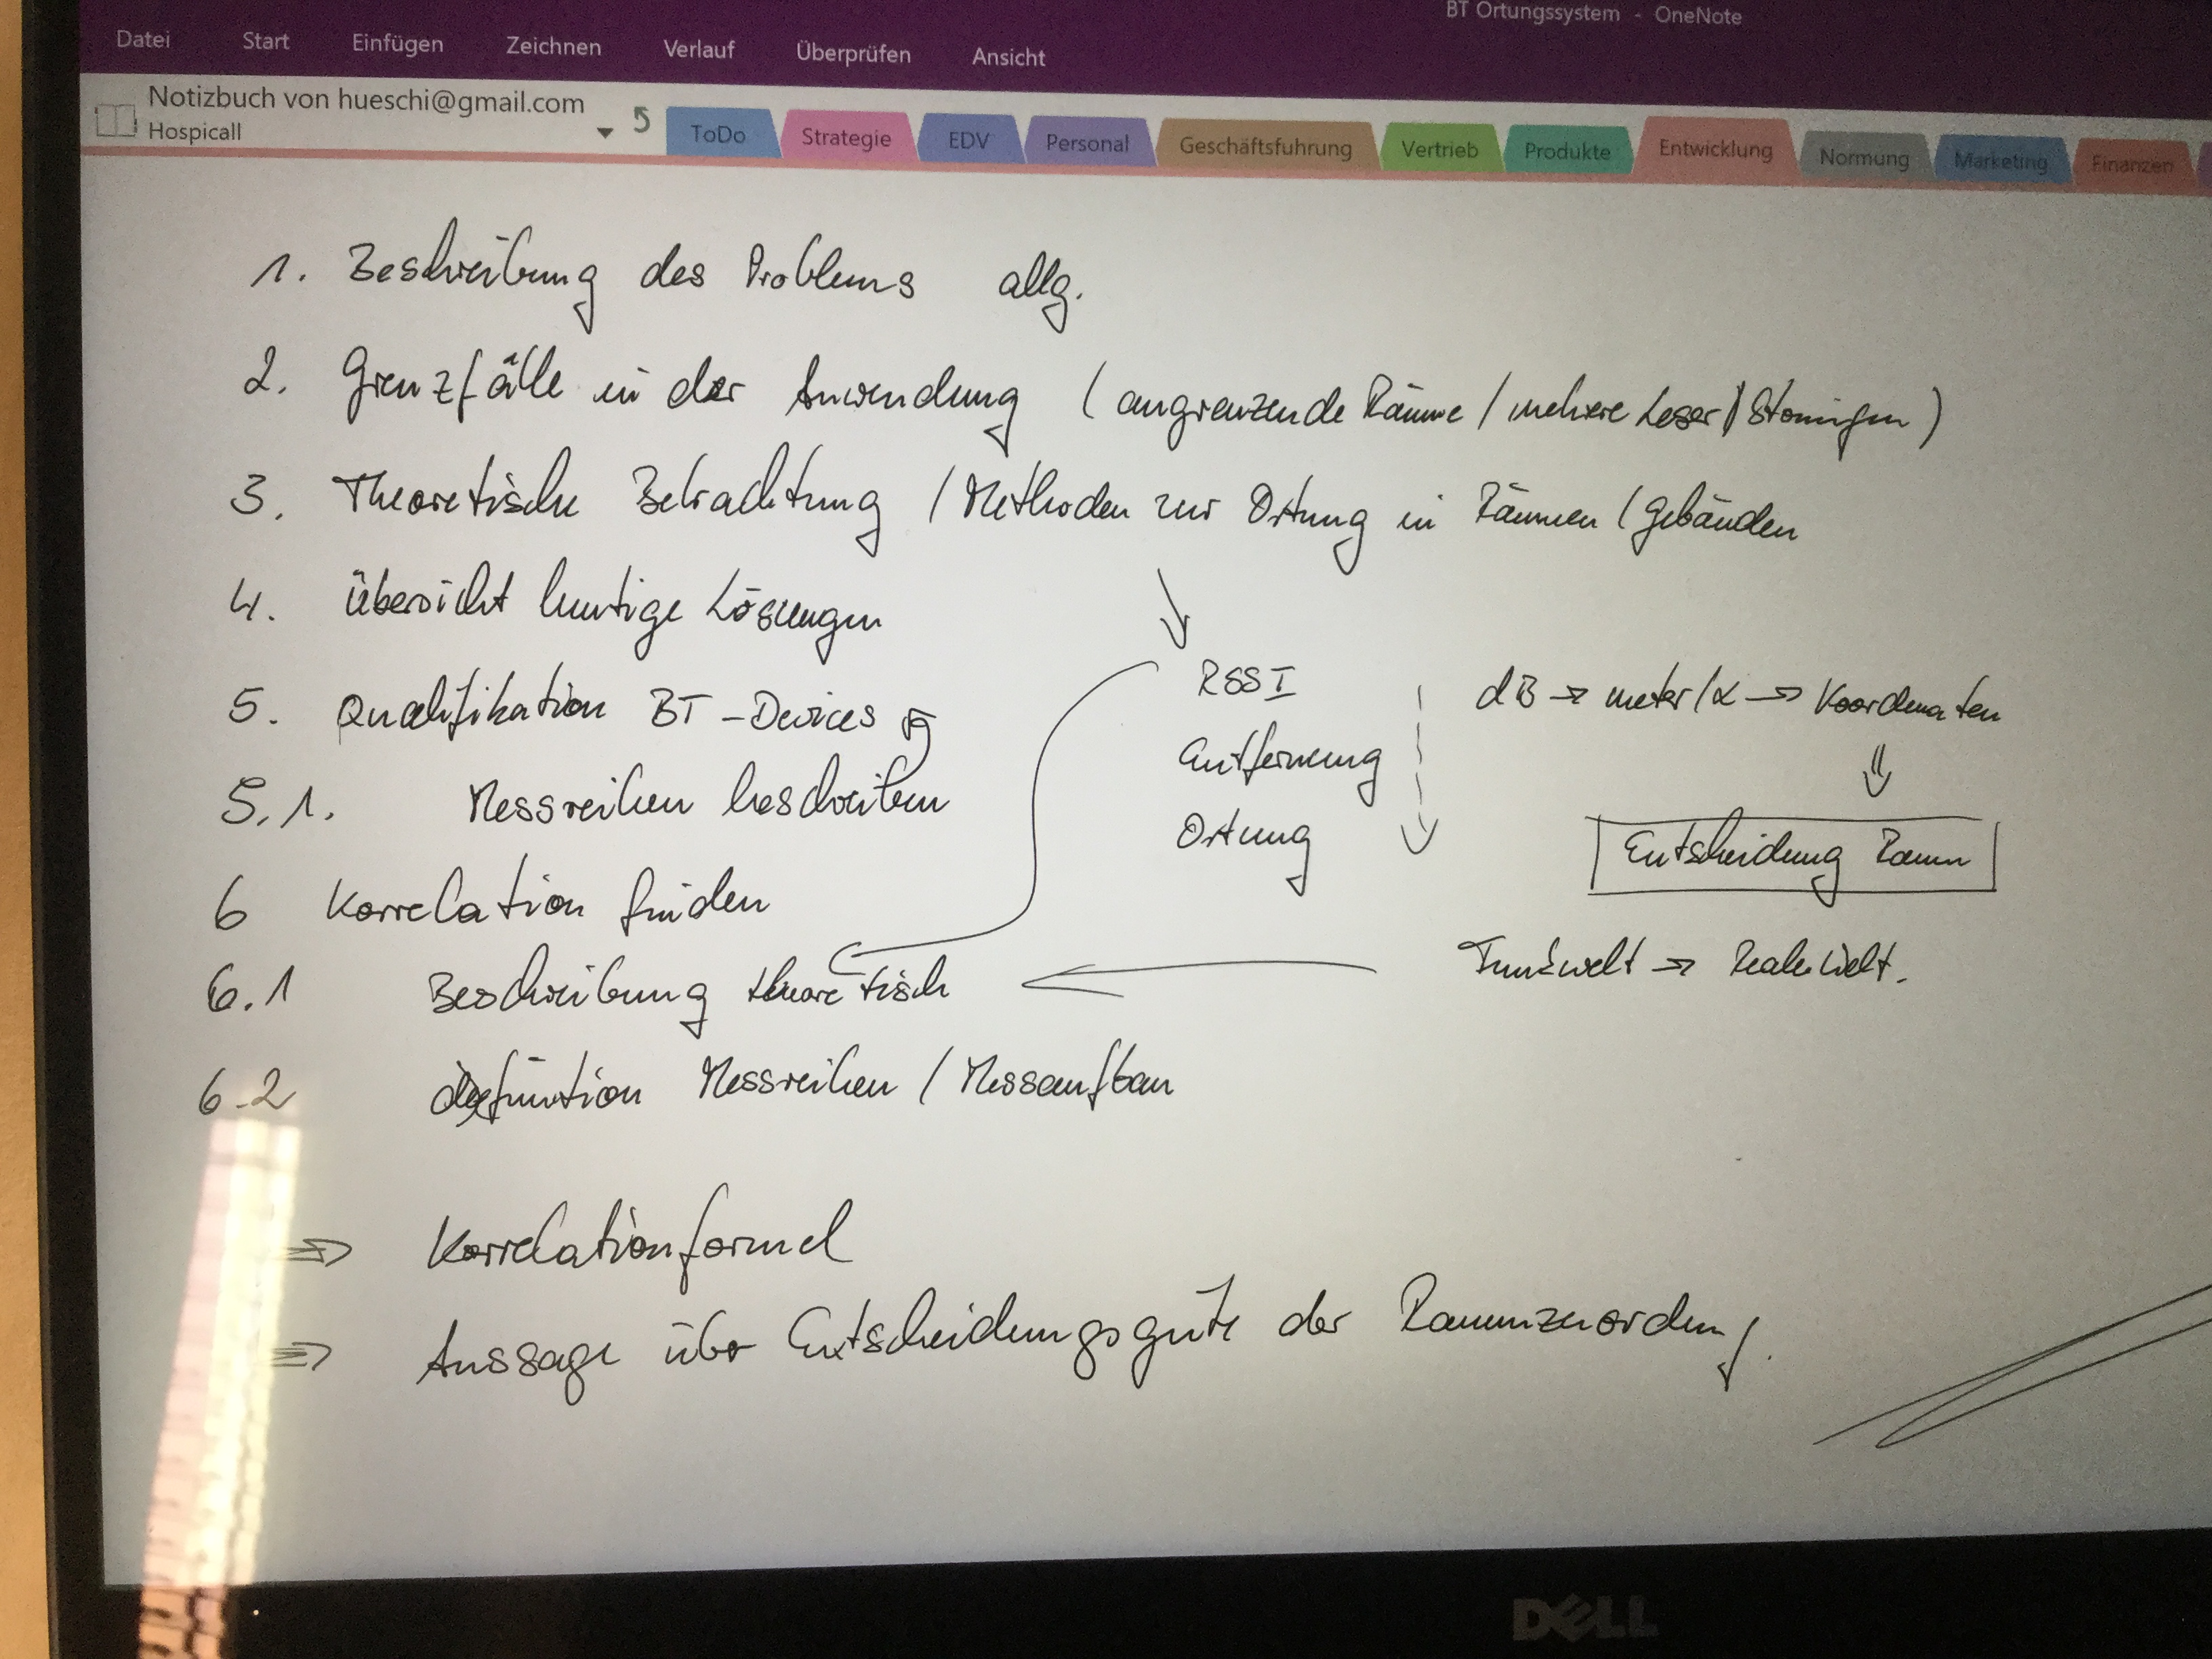 BT Ortungssystem - OneNote
Datei Start Einfügen Zeichnen Verlauf Überprüfen Ansicht
Notizbuch von hueschi@gmail.com
Hospicall
ToDo Strategie EDV Personal Geschäftsfuhrung Vertrieb Produkte Entwicklung Normung Marketing Finanzen
1. Beschreibung des Problems allg.
2. Grenzfälle in der Anwendung (angrenzende Räume / mehrere Leser / Störungen)
3. Theoretische Betrachtung / Methoden zur Ortung in Räumen / Gebäuden
4. Übersicht heutige Lösungen
5. Qualifikation BT-Devices
5.1. Messreihen beschreiben
6 Korrelation finden
6.1 Beschreibung theoretisch
6.2 definition Messreihen / Messaufbau
⇒ Korrelationformel
⇒ Aussage über Entscheidungsgüte der Raumzuordnung.
RSSI
Entfernung
Ortung
dB → meter/α → Koordinaten
Entscheidung Raum
Funkwelt → Reale Welt.
DELL